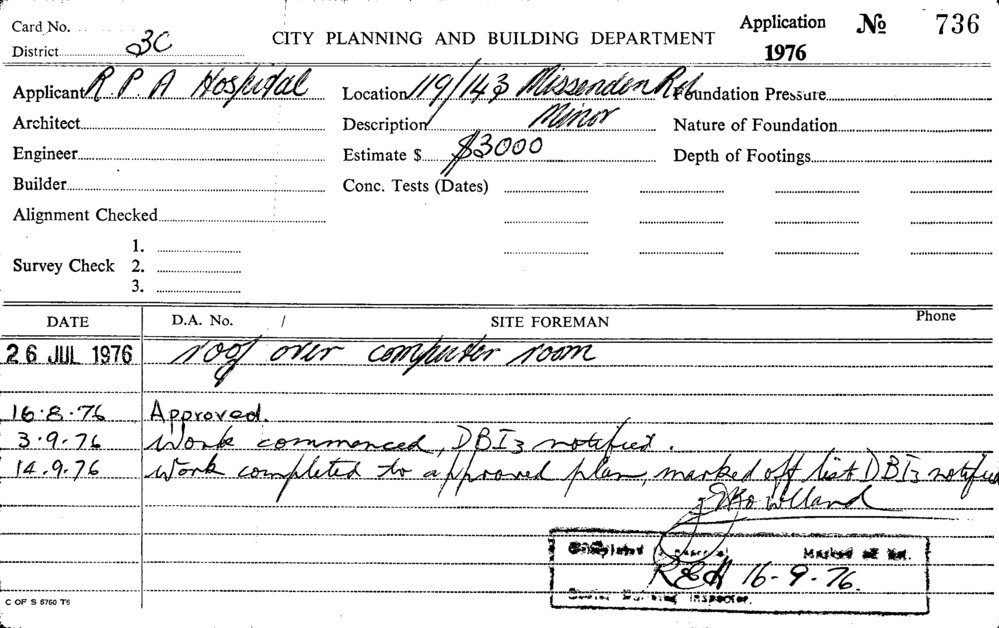 Card No. Application No 736
District 3C CITY PLANNING AND BUILDING DEPARTMENT 1976
Applicant R P A Hospital Location 119/143 Missenden Rd Foundation Pressure
Architect Description Minor Nature of Foundation
Engineer Estimate $ $3000 Depth of Footings
Builder Conc. Tests (Dates)
Alignment Checked
1.
Survey Check 2.
3.
DATE D.A. No. / SITE FOREMAN Phone
26 JUL 1976 roof over computer room
16.8.76 Approved.
3.9.76 Work commenced, DBI3 notified.
14.9.76 Work completed to approved plan, marked off list DBI3 notified
Completed Marked off list.
16-9-76
Building Inspector.
C OF S 6760 T6